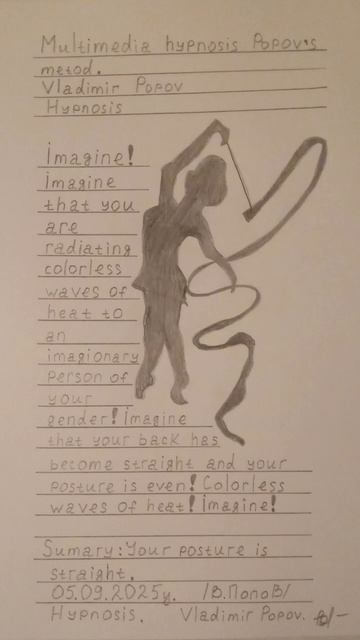 Multimedia hypnosis Popov's
metod.
Vladimir Popov
Hypnosis
Imagine!
Imagine
that you
are
radiating
colorless
waves of
heat to
an
imagionary
person of
your
gender! Imagine
that your back has
become straight and your
posture is even! Colorless
waves of heat! Imagine!
Sumary: Your posture is
straight.
05.09.2025г. /В.Попов/
Hypnosis. Vladimir Popov.